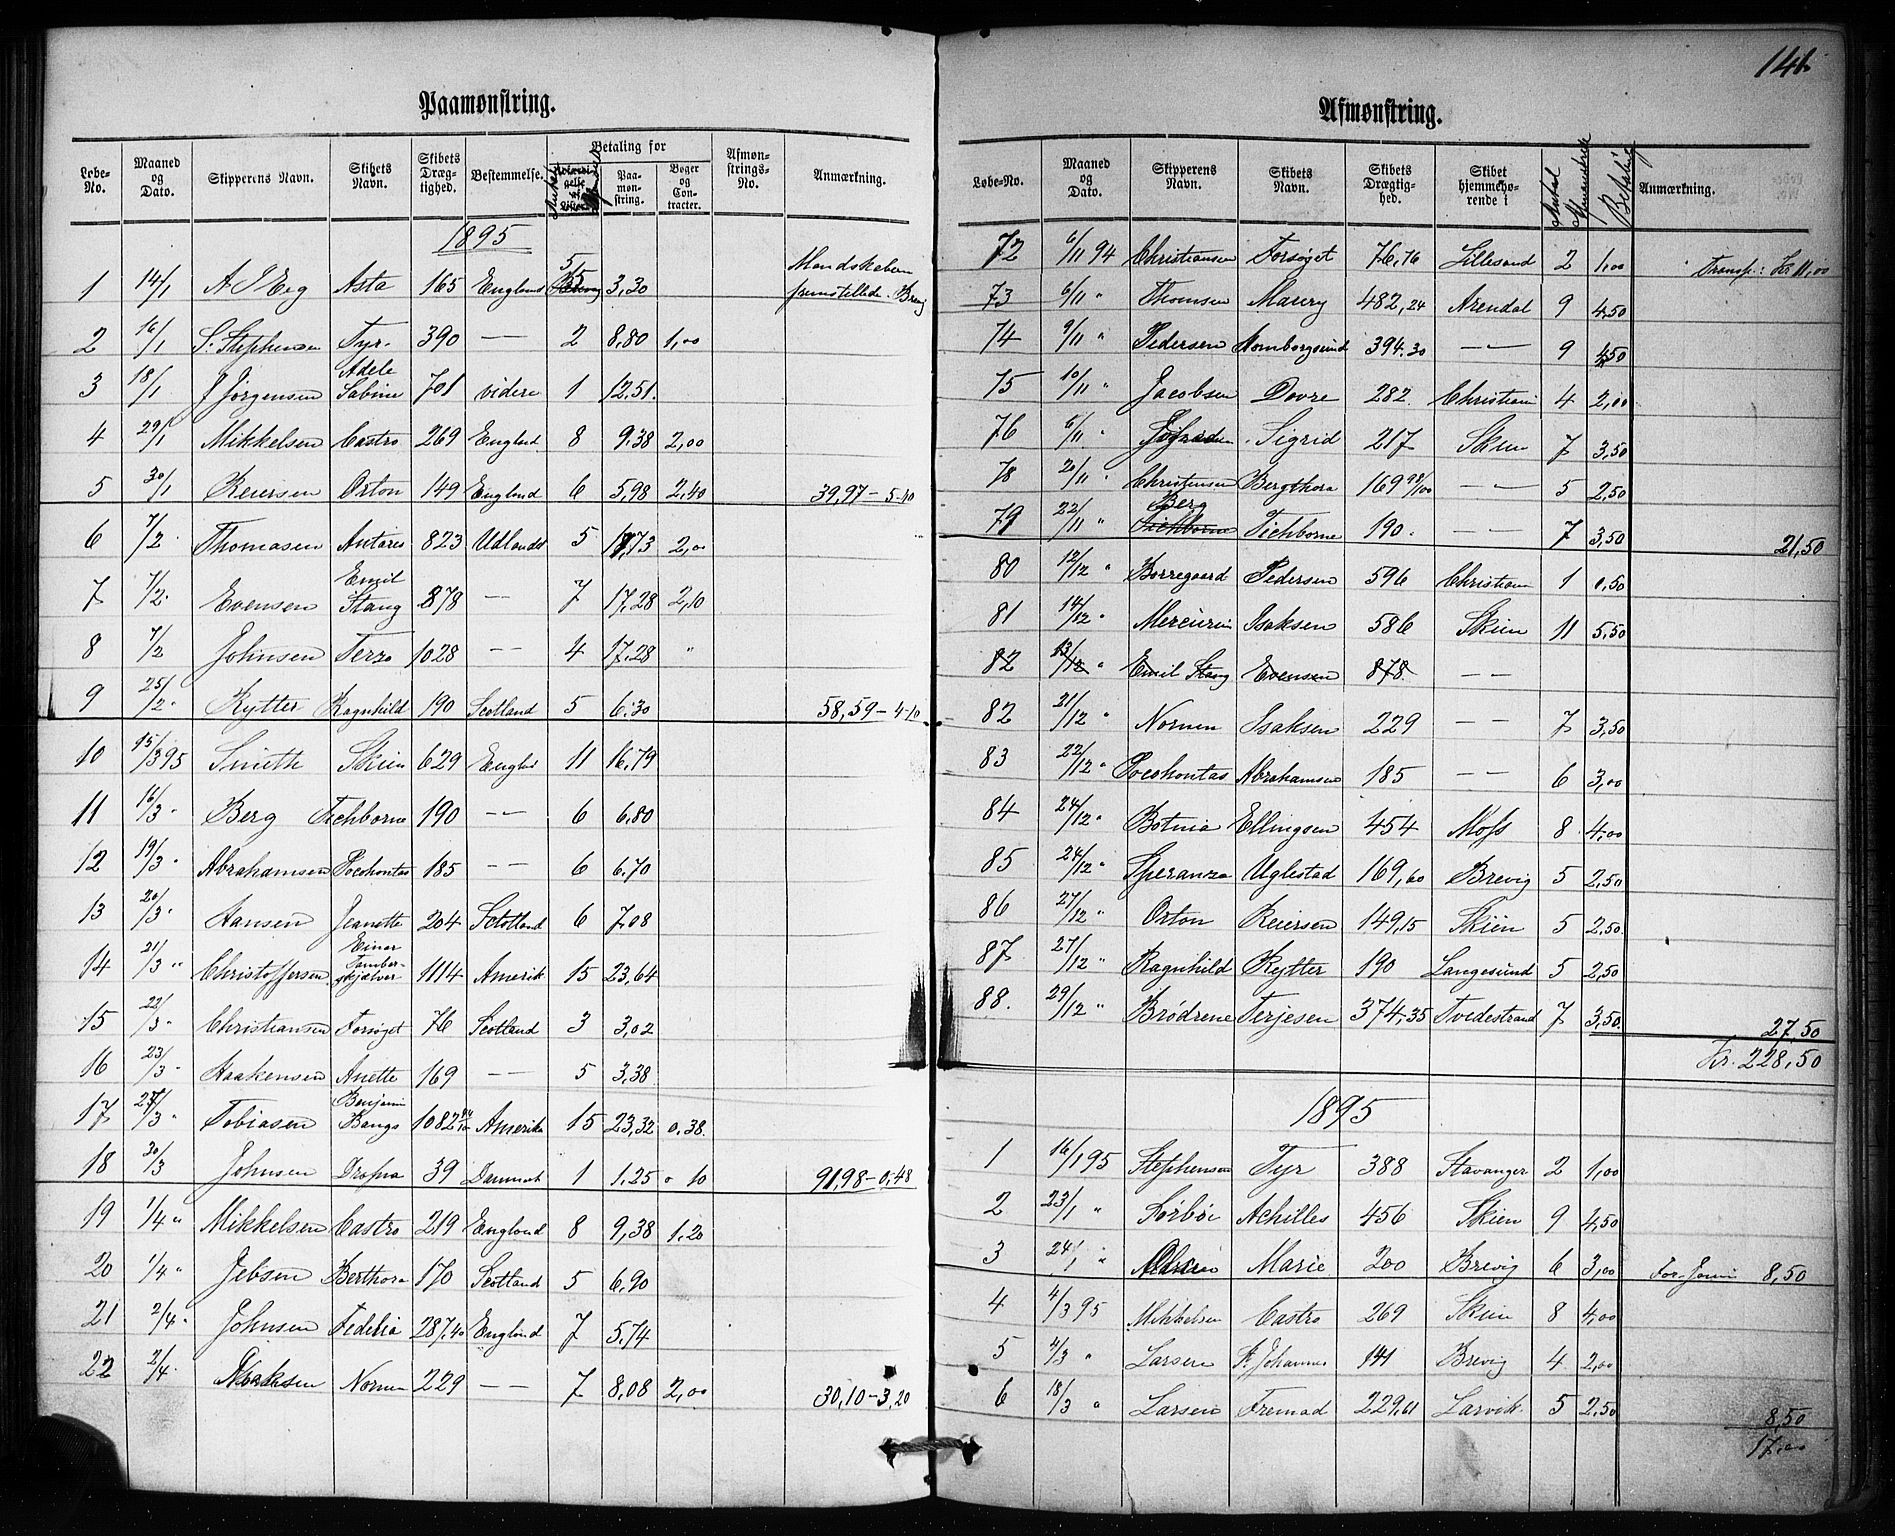 141
Paamønstring.
Løbe-No. Maaned og Dato. Skipperens Navn. Skibets Navn. Skibets Dræg-tighed. Bestemmelse. Betaling for Paa-mon-string. Bøger og Con-tracter. Afmøn-strings-No. Anmærkning.
1895
1 14/1 Asta 165 England 5 3,30 Mandskaberne
2 16/1 S. Stephensen Tyr 390 — 2 8,80 1,00
3 18/1 J Jørgensen Adele Sabine 701 videre 1 12,51
4 29/1 Mikkelsen Castro 269 England 8 9.38 2,00
5 30/1 Reiersen Orton 149 England 6 5,98 2,40 39,97 - 5-40
6 7/2 Thomasen Antares 823 Udlandet 5 2,00
7 7/2 Evensen Emil Stang 878 — 7 17,28 2,10
8 7/2 Johnsen Terzo 1028 — 4 17,28 "
9 25/2 Rytter Ragnhild 190 Scotland 5 6.30 58,59 - 4-10
10 15/3 95 Smith Skien 629 Engld 11 16,79
11 16/3 " Berg Tichborne 190 — 6 6,80
12 19/3 " Abrahamsen Pocohontas 185 — 6 6,70
13 20/3 " Hansen Jeanette 204 Scotland 6 7,08
14 21/3 " Christoffersen Einar Tamber-skjælver 1114 Amerik 15 23,64
15 22/3 " Christiansen Forsøget 76 Scotland 3 3,02
16 23/3 " Haakensen Anette 169 — 5 3,38
17 27/3 " Tobiasen Benjamin Bangs 1082 Amerika 15 23,32 0.38
18 30/3 Johnsen 39 Danmark 1 1.25 0 10 91,98 - 0,48
19 1/4 " Mikkelsen Castro 219 England 8 9,38 1.20
20 1/4 " Jebsen Berthora 170 Scotland 5 6.90
21 2/4 " Johnsen Fedelia 287.40 England 7 5.74
22 2/4 Nornen 229 — 7 8,08 2,00 30,10 - 3,20
Afmønstring.
Løbe-No. Maaned og Dato. Skipperens Navn. Skibets Navn. Skibets Drægtig-hed. Skibet hjemmehø-rende i Antal Mandskab Betaling Anmærkning.
72 6/11 94 Christiansen Forsøget 76,76 Lillesand 2 1,00 Transp: Kr 11,00
73 6/11 " Thomsen 482,24 Arendal 9 4,50
74 9/11 " Pedersen Homborgsund 394.30 — 9 4,50
75 10/11 " Jacobsen Dovre 282 Christiania 4 2,00
76 6/11 " Sigrid 217 Skien 7 3,50
78 20/11 " Christensen Bergthora 169 92/100 — 5 2,50
79 22/11 " Berg Tichborne Tichborne 190 — 7 3,50 21,50
80 12/12 " Borregaard Pedersen 596 Christian 1 0,50
81 14/12 " Mercurius Isaksen 586 Skien 11 5,50
82 13/12 " Emil Stang Evensen 878 —
82 21/12 " Nornen Isaksen 229 — 7 3,50
83 22/12 " Pocohontas Abrahamsen 185 — 6 3,00
84 24/12 " Botnia Ellingsen 454 Moss 8 4,00
85 24/12 " Speranza Uglestad 169,60 Brevig 5 2,50
86 27/12 " Orton Reiersen 149,15 Skien 5 2,50
87 27/12 " Ragnhild Rytter 190 Langesund 5 2,50
88. 29/12 " Brødrene Terjesen 374,35 Tvedestrand 7 3,50 27,50
Kr. 228,50
1895
1 16/1 95 Stephensen Tyr 388 Stavanger 2 1,00
2 23/1 " Sørbøe Achilles 456 Skien 9 4,50
3 24/1 " Marie 200 Brevig 6 3,00 8,50
4 4/3 95 Mikkelsen Castro 269 Skien 8 4,00
5 " Larsen St. Johannes 141 Brevig 4 2,00
6 18/3 " Larsen Fremad 229,61 Larvik 5 2,50
8,50
17,00